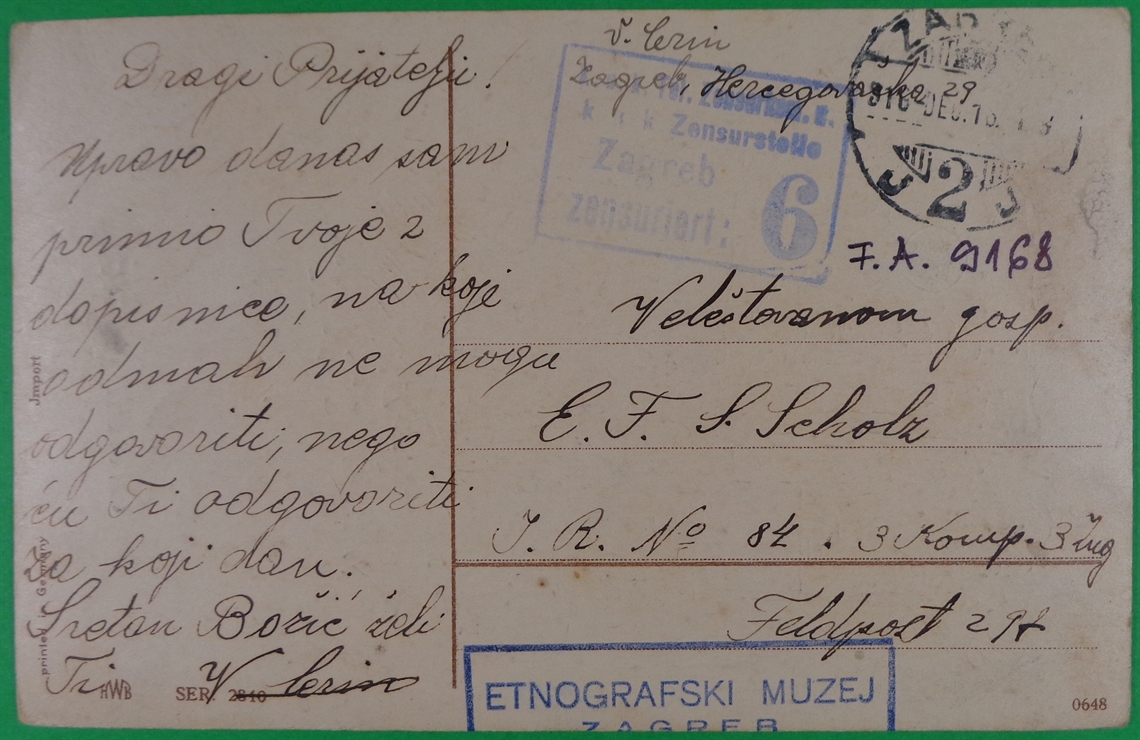 Dragi Prijatelju!
Upravo danas sam
primio Tvoje 2
dopisnice, na koje
odmah ne mogu
odgovoriti, nego
ću Ti odgovoriti
za koji dan.
Sretan Božić želi
Ti V. Cerin
V. Cerin
Zagreb, Hercegovačka 29
k. u. k. Zensurstelle
Zagreb
zensuriert: 6
ZAGREB
916 DEC. 18.
2
F. A. 9168
Veleštovanom gosp.
E. F. S. Scholz
I. R. No 84. 3 Komp. 3 Zug
Feldpost
ETNOGRAFSKI MUZEJ
ZAGREB
Import
printed in Germany
HWB SER. 2810
0648